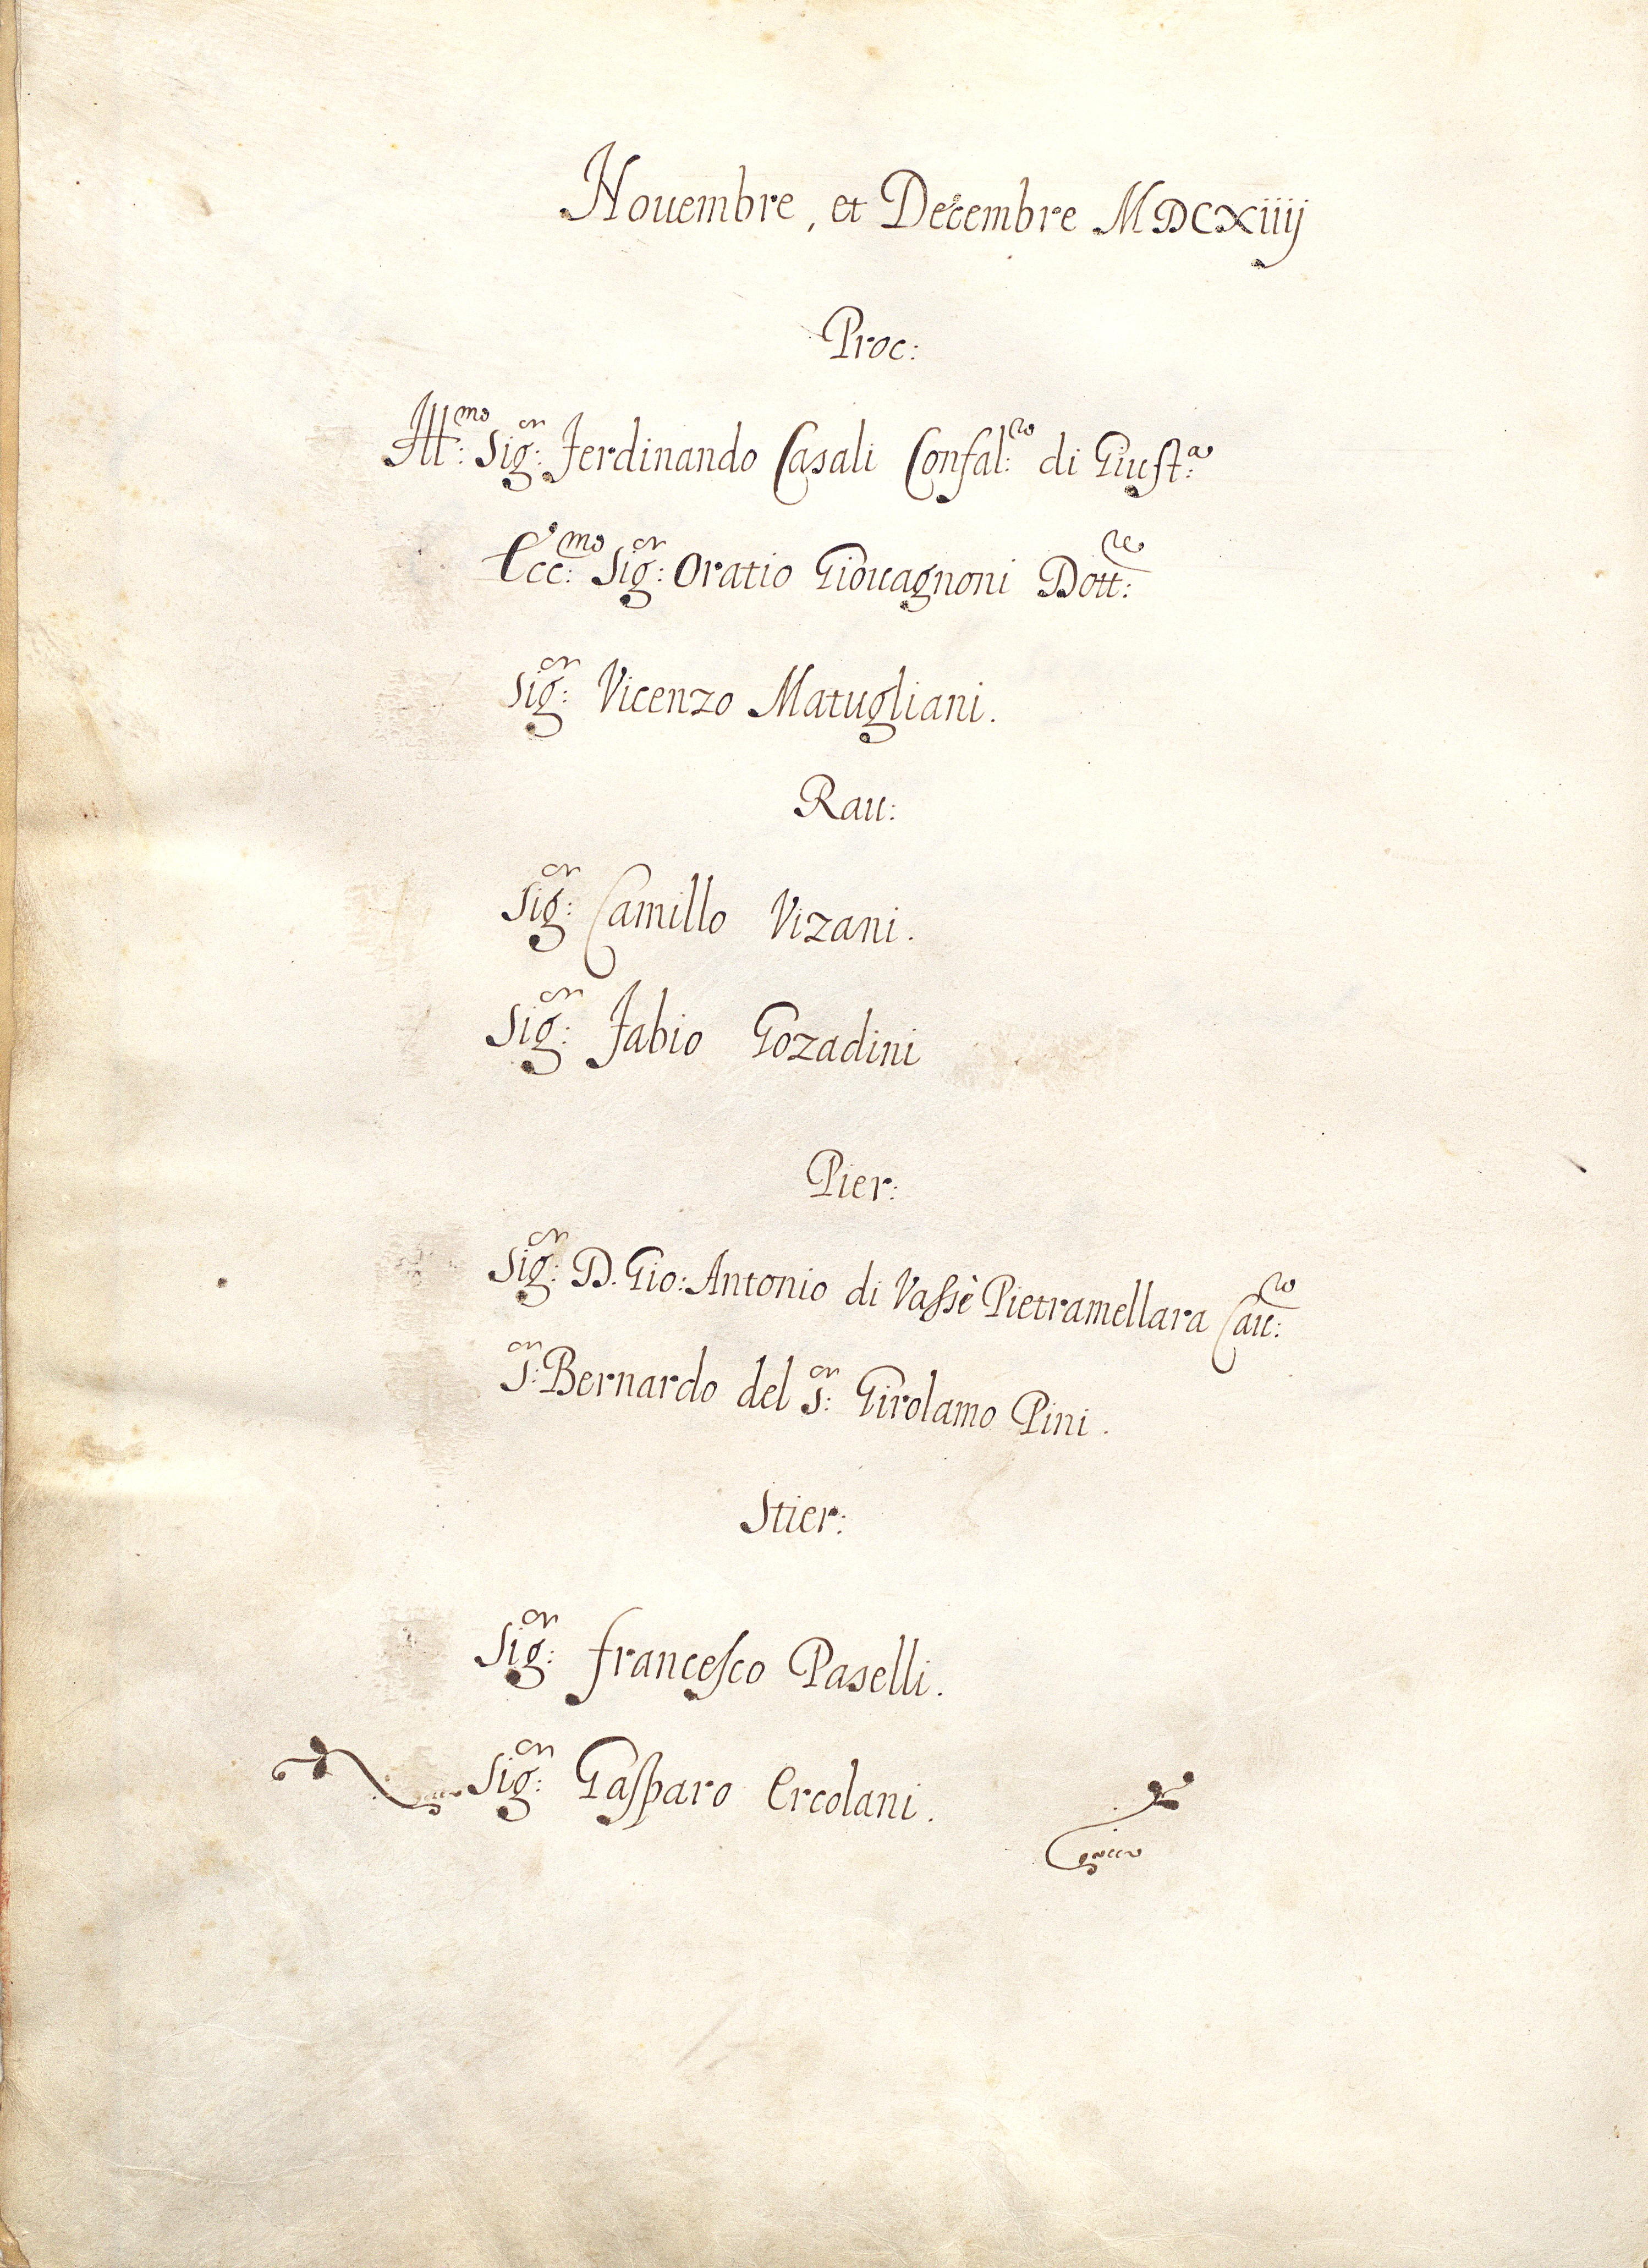 Nouembre, et Decembre MDCXiiij
Proc:
Ill:mo Sig:or Ferdinando Casali Confal:ro di Giust:a
Ecc:mo Sig:or Oratio Giouagnoni Dott:re
Sig:or Vicenzo Matugliani.
Rau:
Sig:or Camillo Vizani.
Sig:or Fabio Gozadini
Pier:
Sig:or D. Gio: Antonio di Vassè Pietramellara Cau:ro
S:or Bernardo del S:or Girolamo Pini.
Stier:
Sig:or Francesco Paselli.
Sig:or Gasparo Ercolani.